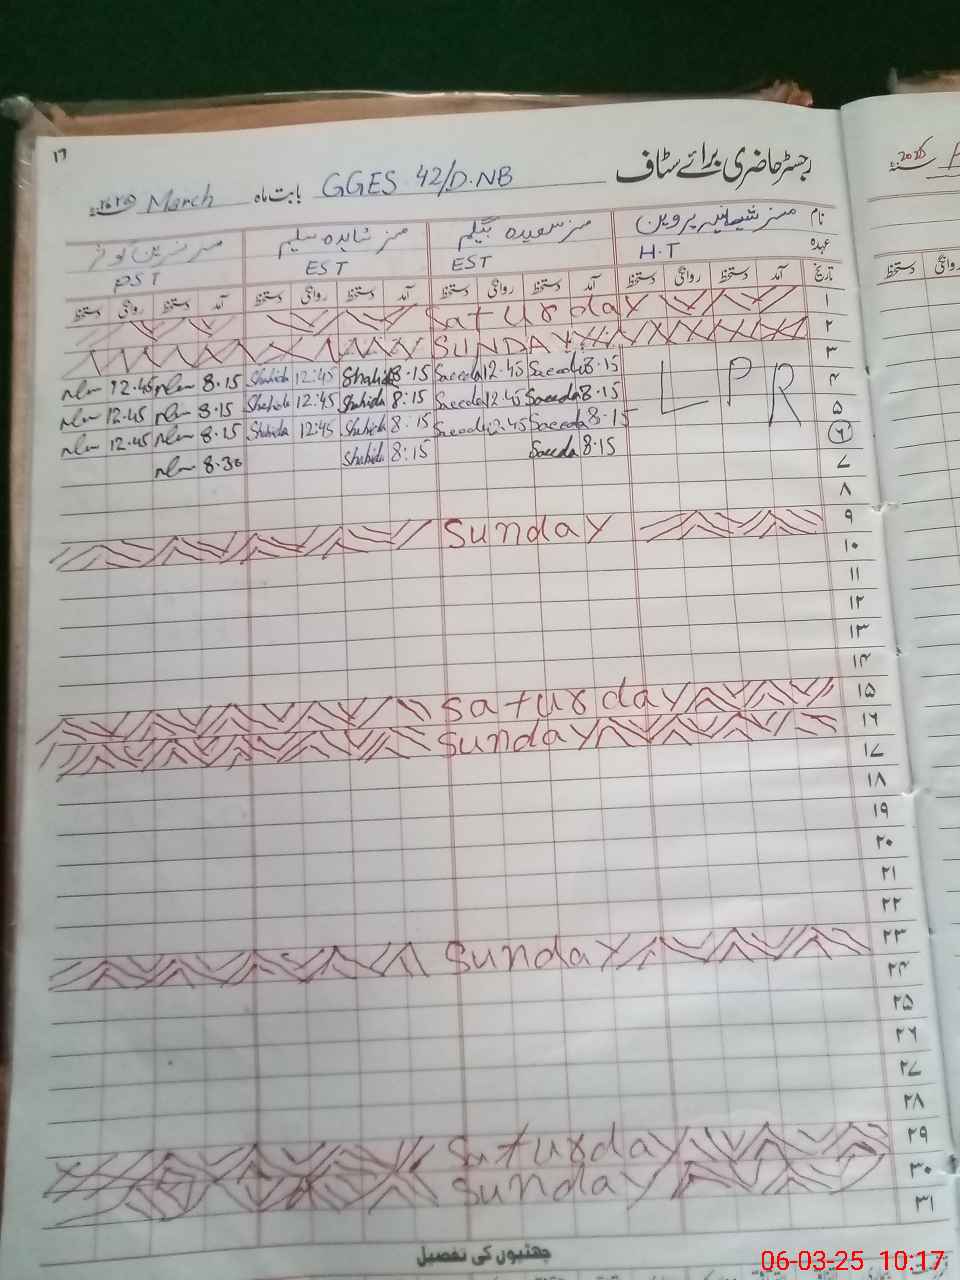 ١٦
رجسٹر حاضری برائے سٹاف
GGES 42/D.NB بابت ماہ March
نام مسز پروین مسز سعیدہ بیگم مسز شاہدہ سلیم مسز نسرین کوثر
عہدہ H.T EST EST PST
تاریخ آمد دستخط روانگی دستخط آمد دستخط روانگی دستخط آمد دستخط روانگی دستخط آمد دستخط روانگی دستخط
۱ Saturday
۲ SUNDAY
۳ LPR 8.15 Saeeda 12.45 Saeeda 8.15 Shahida 12:45 Shahida 8.15 12.45
۴ 8.15 Saeeda 12.45 Saeeda 8:15 Shahida 12:45 Shahida 8.15 12.45
۵ 8.15 Saeeda 12.45 Saeeda 8:15 Shahida 12:45 Shahida 8.15 12.45
۶ 8.15 Saeeda 8:15 Shahida 8.30
۷
۸
۹ Sunday
۱۰
۱۱
۱۲
۱۳
۱۴
۱۵ Saturday
۱۶ Sunday
۱۷
۱۸
۱۹
۲۰
۲۱
۲۲
۲۳ Sunday
۲۴
۲۵
۲۶
۲۷
۲۸
۲۹ Saturday
۳۰ Sunday
۳۱
چھٹیوں کی تفصیل
06-03-25 10:17